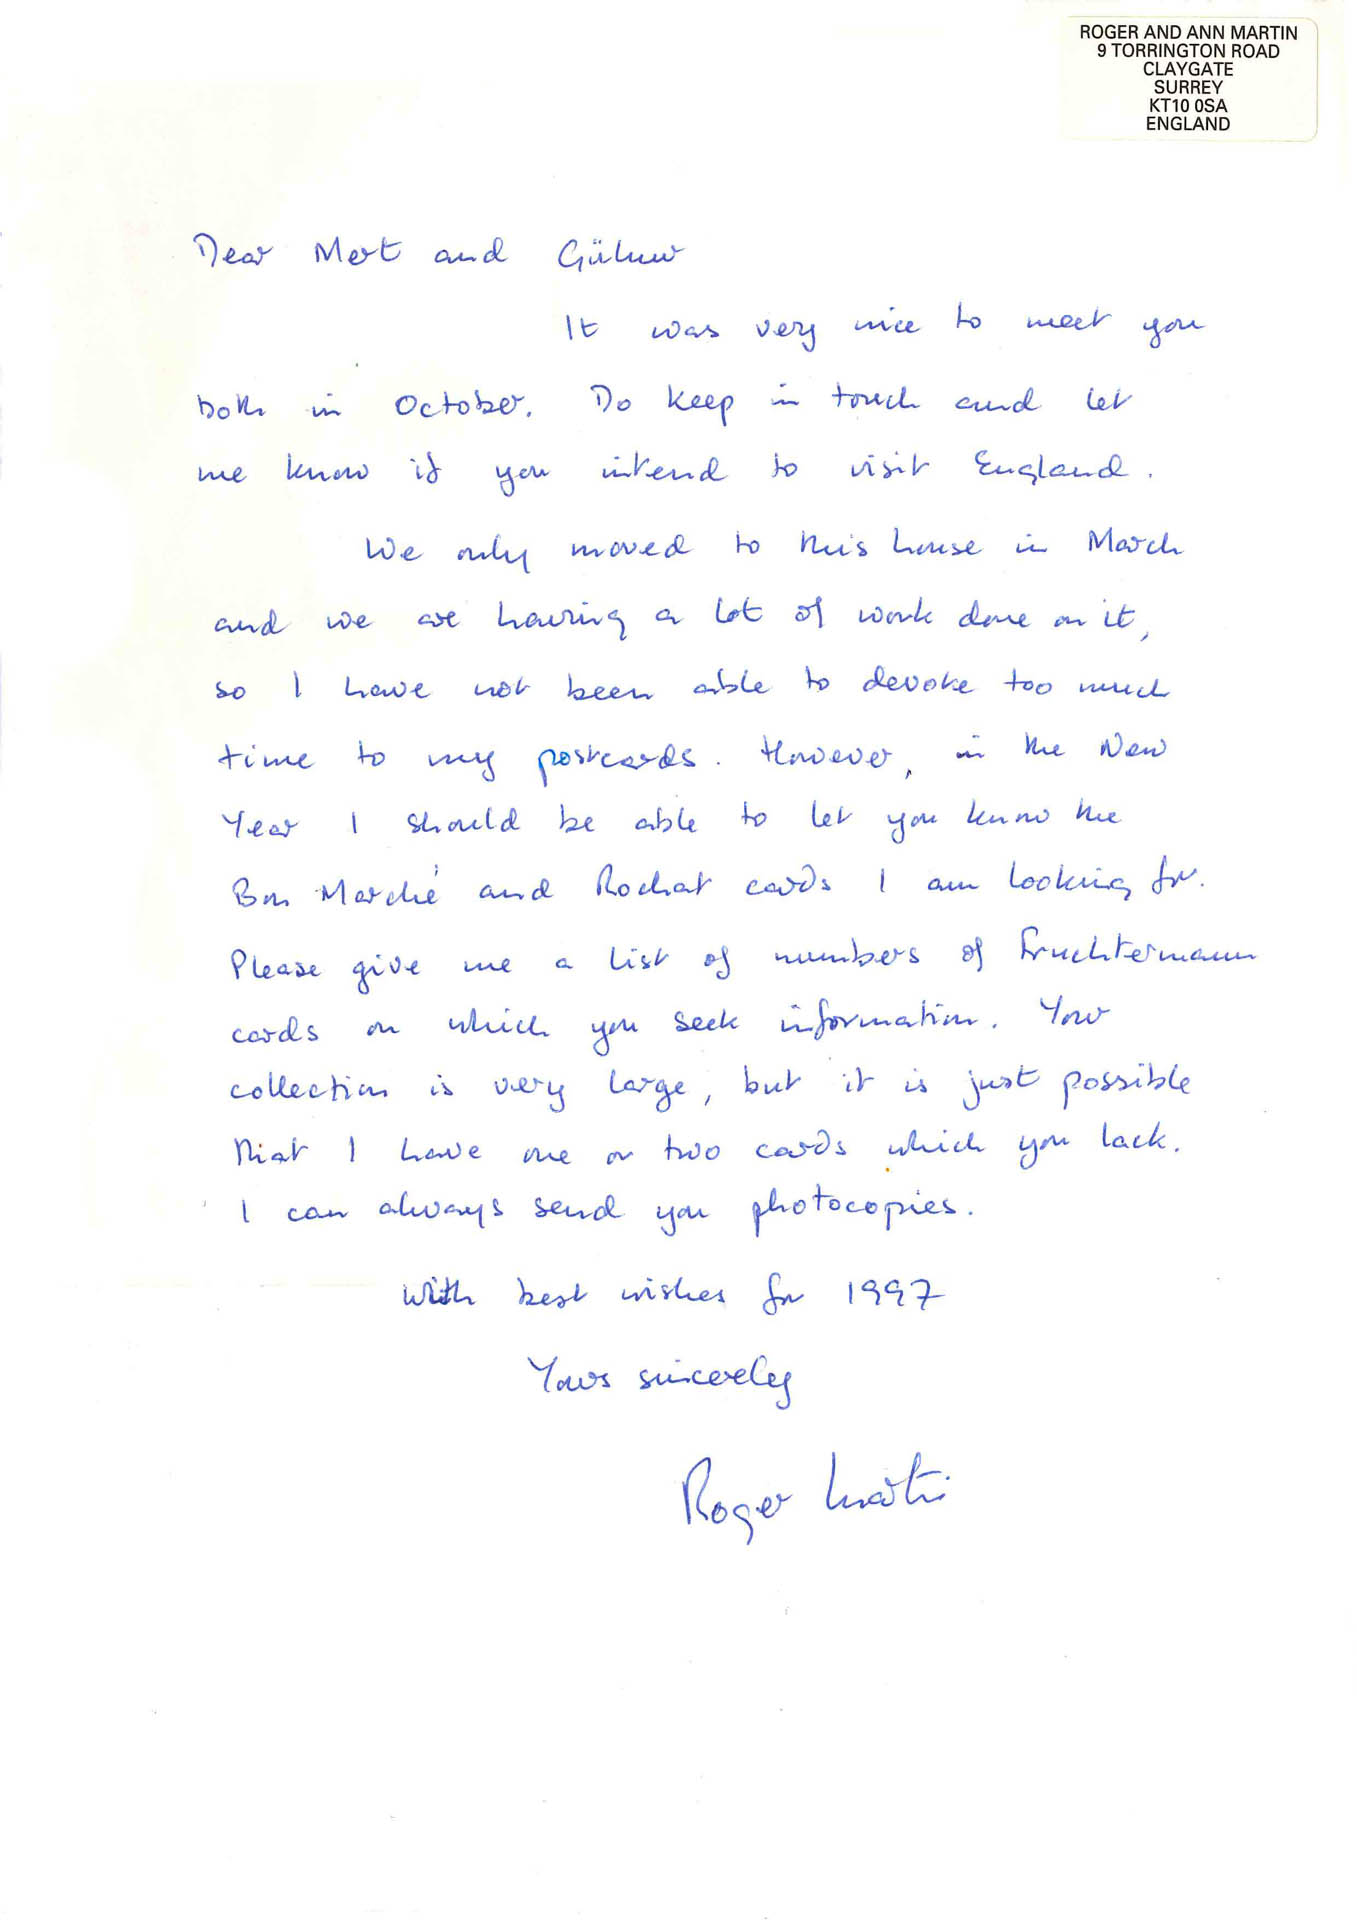 ROGER AND ANN MARTIN
9 TORRINGTON ROAD
CLAYGATE
SURREY
KT10 0SA
ENGLAND
Dear Mert and
It was very nice to meet you
both in October. Do keep in touch and let
me know if you intend to visit England.
We only moved to this house in March
and we are having a lot of work done on it,
so I have not been able to devote too much
time to my postcards. However, in the New
Year I should be able to let you know the
Bon Marché and Rochat cards I am looking for.
Please give me a list of numbers of Fruchtermann
cards on which you seek information. Your
collection is very large, but it is just possible
that I have one or two cards which you lack.
I can always send you photocopies.
With best wishes for 1997
Yours sincerely
Roger Martin